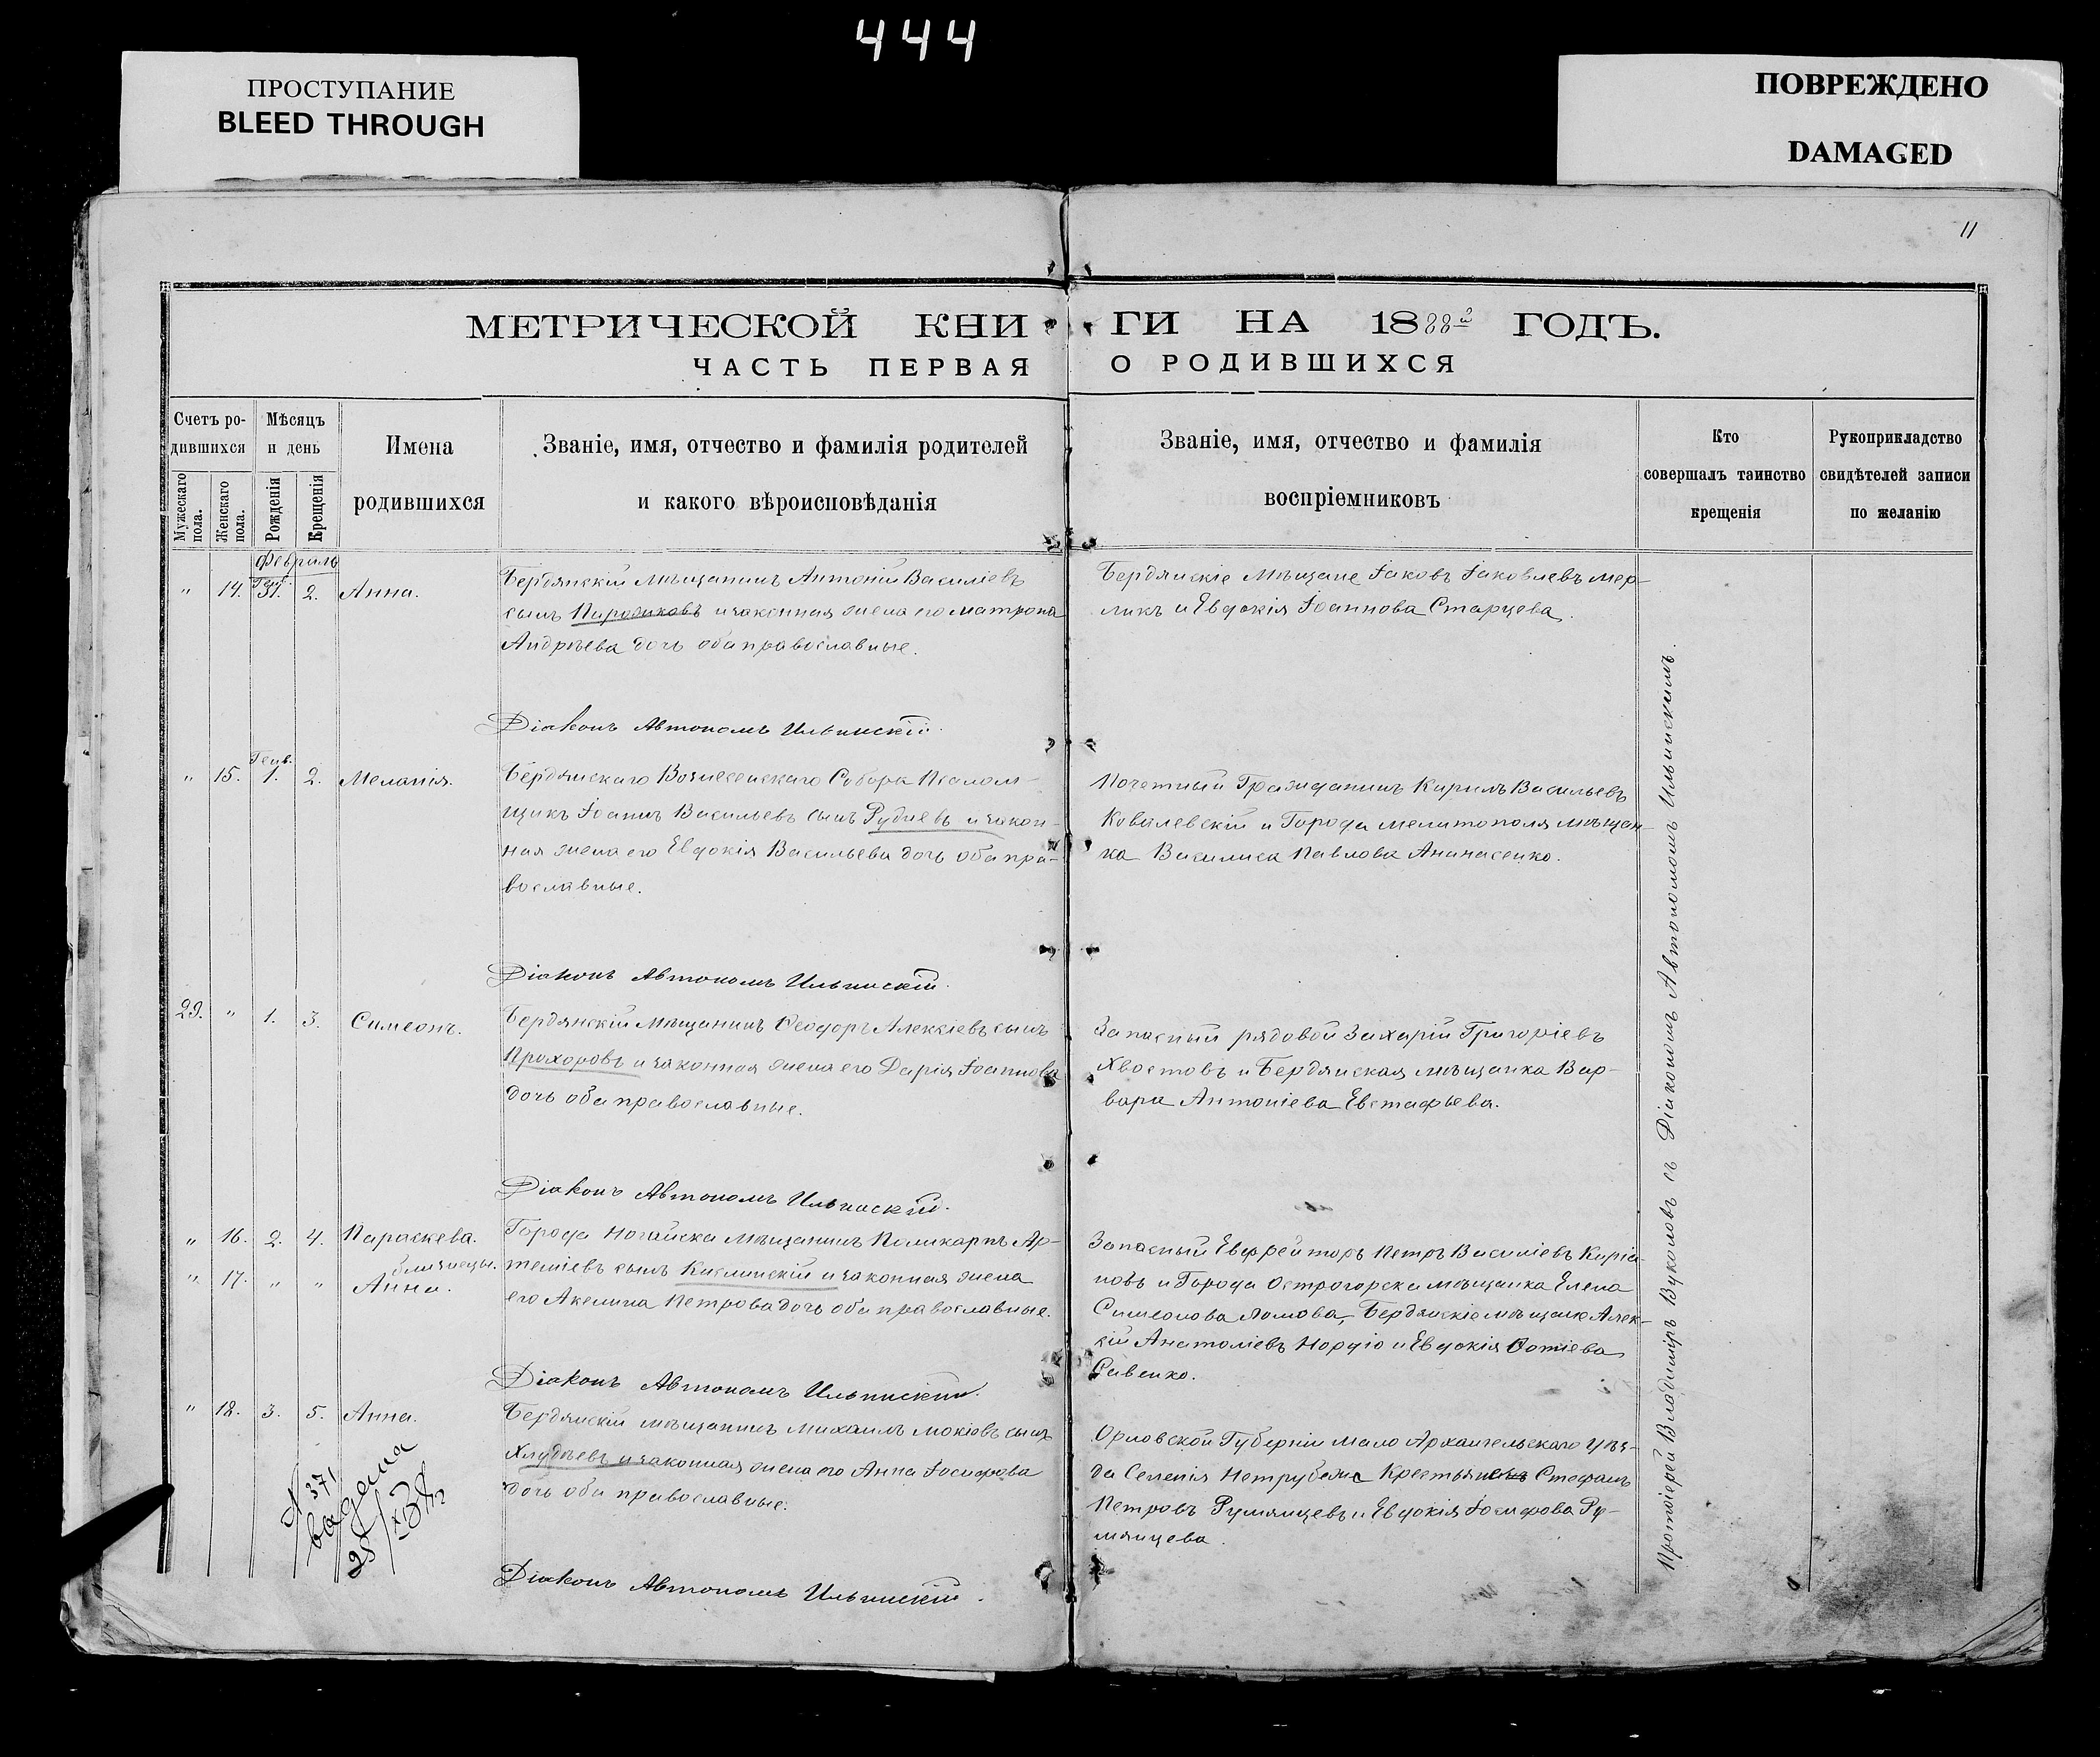 444
ПРОСТУПАНИЕ
BLEED THROUGH
ПОВРЕЖДЕНО
DAMAGED
11
МЕТРИЧЕСКОЙ КНИГИ НА 1888й ГОДЪ.
ЧАСТЬ ПЕРВАЯ О РОДИВШИХСЯ
Счетъ ро-
дившихся
Мужескаго пола.
Женскаго пола.
Мѣсяцъ
и день
Рожденія
Крещенія
Имена
родившихся
Званіе, имя, отчество и фамилія родителей
и какого вѣроисповѣданія
Званіе, имя, отчество и фамилія
воспріемниковъ
Кто
совершалъ таинство
крещенія
Рукоприкладство
свидѣтелей записи
по желанію
Февраль
" 14. Генв. 31. 2. Анна.
Бердянскій Мѣщанинъ Антоній Василіевъ
сынъ и законная жена его Матрона
Андрѣева дочь оба православные.
Бердянскіе Мѣщане Іаковъ Іаковлевъ Мер-
ликъ и Евдокія Іоаннова Старцева.
Діаконъ Автономъ Ильинскій.
" 15. Генв. 1. 2. Меланія.
Бердянскаго Вознесенскаго Собора Псалом-
щикъ Іоаннъ Васильевъ сынъ Рудневъ и закон-
ная жена его Евдокія Васильева дочь оба пра-
вославные.
Почетный Гражданинъ Кирилъ Васильевъ
Ковалевскій и Города Мелитополя мѣщан-
ка Василиса Павлова Ананасенко.
Діаконъ Автономъ Ильинскій.
29. " 1. 3. Симеонъ.
Бердянскій Мѣщанинъ Ѳеодоръ Алексіевъ сынъ
Прохоровъ и законная жена его Дарія Іоаннова
дочь оба православные.
Запасный рядовой Захарій Григоріевъ
Хвостовъ и Бердянская мѣщанка Вар-
вара Антоніева Евстафьева.
Діаконъ Автономъ Ильинскій.
" 16. 2. 4. Параскева.
близнецы.
" 17. " " Анна.
Города Ногайска Мѣщанинъ Поликарпъ Ар-
теміевъ сынъ Кислинскій и законная жена
его Акелина Петрова дочь оба православные.
Запасный Ефрейторъ Петръ Василіевъ Киріа-
новъ и Города Острогорска мѣщанка Елена
Симеонова Ломова, Бердянскіе мѣщане Алек-
сій Анатоліевъ Нордіо и Евдокія Ѳотіева
Савенко.
Діаконъ Автономъ Ильинскій.
" 18. 3. 5. Анна.
Бердянскій мѣщанинъ Михаилъ Мокіовъ сынъ
Хлудѣевъ и законная жена его Анна Іосифова
дочь оба православные.
Орловской Губерніи Мало Архангельскаго уѣз-
да Селенія Крестьянинъ Стефанъ
Петровъ Румянцевъ и Евдокія Іосифова Ру-
мянцева.
Діаконъ Автономъ Ильинскій.
№ 371
выдана
Протоіерей Владиміръ Вуколовъ съ Діакономъ Автономомъ Ильинскимъ.